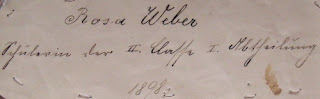 Rosa Weber
Schülerin der II. Classe I. Abtheilung
1898.